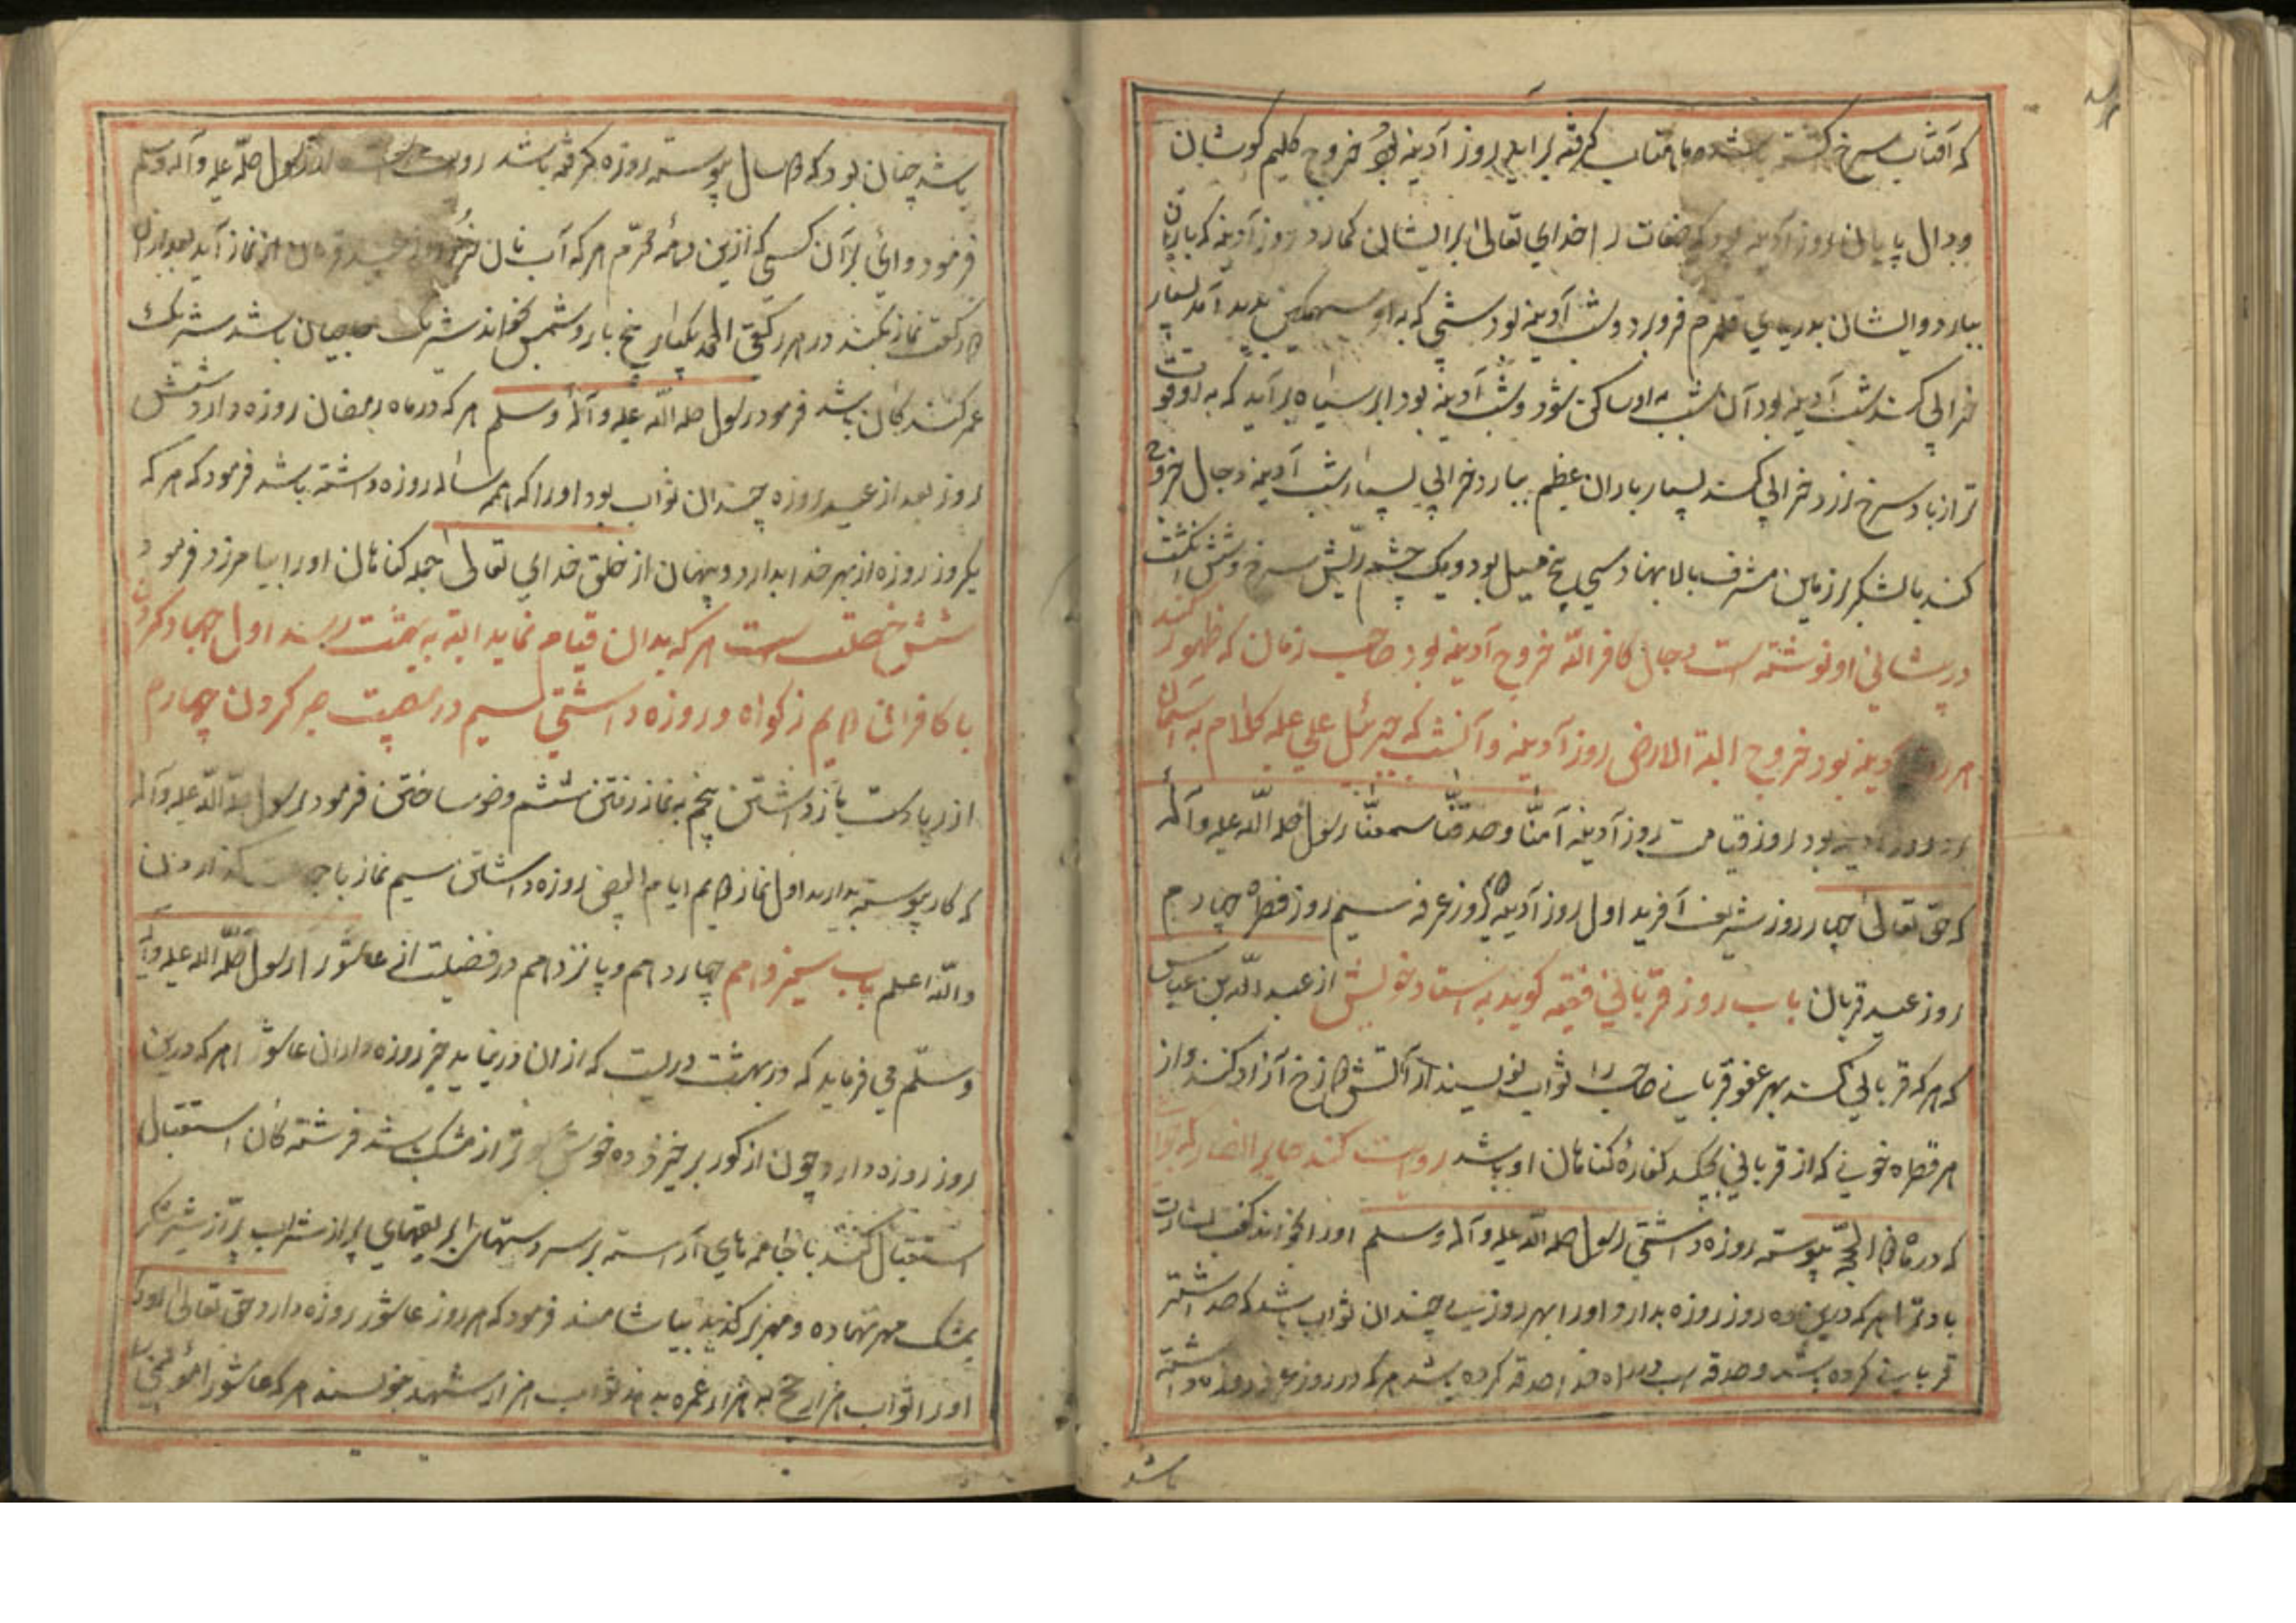 که آفتاب سرخ کشته باشد و ماهتاب گرفته برآید روز آدینه بود خروج کلیم کوشان
روز آدینه بود که صفات را خدای تعالی بر ایشان کمارد روز آدینه که باران
ببارد و ایشان بدریای قلزم فرو برد و شب آدینه بود شبی که به او سهمگین پدید آمد بسیار
خرابی کند شب آدینه بود آن شب به او ساکن شود و شب آدینه بود ابر سیاه برآید که به او قوت
تر از باد سرخ لرزد خرابی کند بسیار باران عظیم ببارد خرابی بسیار شب آدینه دجال خروج
کند با لشکر از زمین مشرف بالا پهنا و سی پنج میل بود و یک چشم ریش سرخ و شش انگشت
در پیشانی او نوشته است دجال کافر الله خروج آدینه بود صاحب زمان که ظهور کند
آدینه بود خروج البة الارض روز آدینه و آنست که جبرئیل علی علیه کلام به آسمان
بود روز قیامت روز آدینه آمنّا و صدقنا سمعنا رسول صلی الله علیه و آله
که حق تعالی چهار روز شریف آفرید اول روز آدینه روز عرفه سیم روز فطره چهارم
روز عید قربان باب روز قربانی فقیه کوید به استاد خویش از عبد الله بن عباس
که هر که قربانی کند بهر عضو قربانی صاحب را ثواب نویسند از آتش دوزخ آزاد کند و از
هر قطره خونی که از قربانی بچکد کفارهٔ کناهان او باشد روایت کند جابر انصار که ثواب
که در ماه ذا الحجه پیوسته روزه داشتی رسول صلی الله علیه و آله و سلم او را بخواند کفت بشارت
باد ترا هر که درین ده روز روزه بدارد او را بهر روزی چندان ثواب باشد که صد اشتر
قربانی کرده باشد و صدقه در راه خدا صدقه کرده باشد هر که در روز عرفه روزه داشته
باشد
باشد چنان بود که دو سال پیوسته روزه گرفته باشد روایت است رسول صلی الله علیه و آله وسلم
فرمود وای بر آن کسی که ازین ماه محرم هر که آب نان نماز آید بعد از آن
دو رکعت نماز بکند در هر رکعتی الحمد یکبار پنج بار و شمس بخواند شریک حاجیان باشد شریک
عمر کنندکان باشد فرمود رسول صلی الله علیه و آله وسلم هر که در ماه رمضان روزه دارد شش
روز بعد از عید روزه چندان ثواب بود او را که همه ساله روزه داشته باشد فرمود که هر که
یکروز روزه از بهر خدا بدارد و پنهان از خلق خدای تعالی جمله کناهان او را بیامرزد فرمود
شش خصلت است هر که بدان قیام نماید البته به بهشت رسند اول جهاد کردن
با کافران دویم زکواه و روزه داشتی سیم در مصیبت صبر کردن چهارم
از ریا دست باز داشتن پنجم به نماز رفتن ششم وضو ساختن فرمود رسول صلی الله علیه و آله
که کار پیوسته بدارید اول نماز دویم ایام البیض روزه داشتن سیم نماز با جماعت کذاردن
والله اعلم باب سیزدهم چهاردهم و پانزدهم در فضیلت عاشورا رسول صلی الله علیه و آله
و سلّم می فرماید که در بهشت دریست که از آن در نیاید جز روزه داران عاشورا هر که درین
روز روزه دارد چون از کور برخیزد خوشبوتر از مشک باشد فرشته کان استقبال
استقبال کنند با جامه های آراسته بر سر دستهای ابریقهای پر از شراب پر از شیر شکر
بمشک مهر نهاده و مهر برکنند بیاشامند فرمود که هر روز عاشورا روزه دارد حق تعالی
او را ثواب هزار حج به هزار عمره بدهد ثواب هزار شهید بنویسند هر که عاشورا